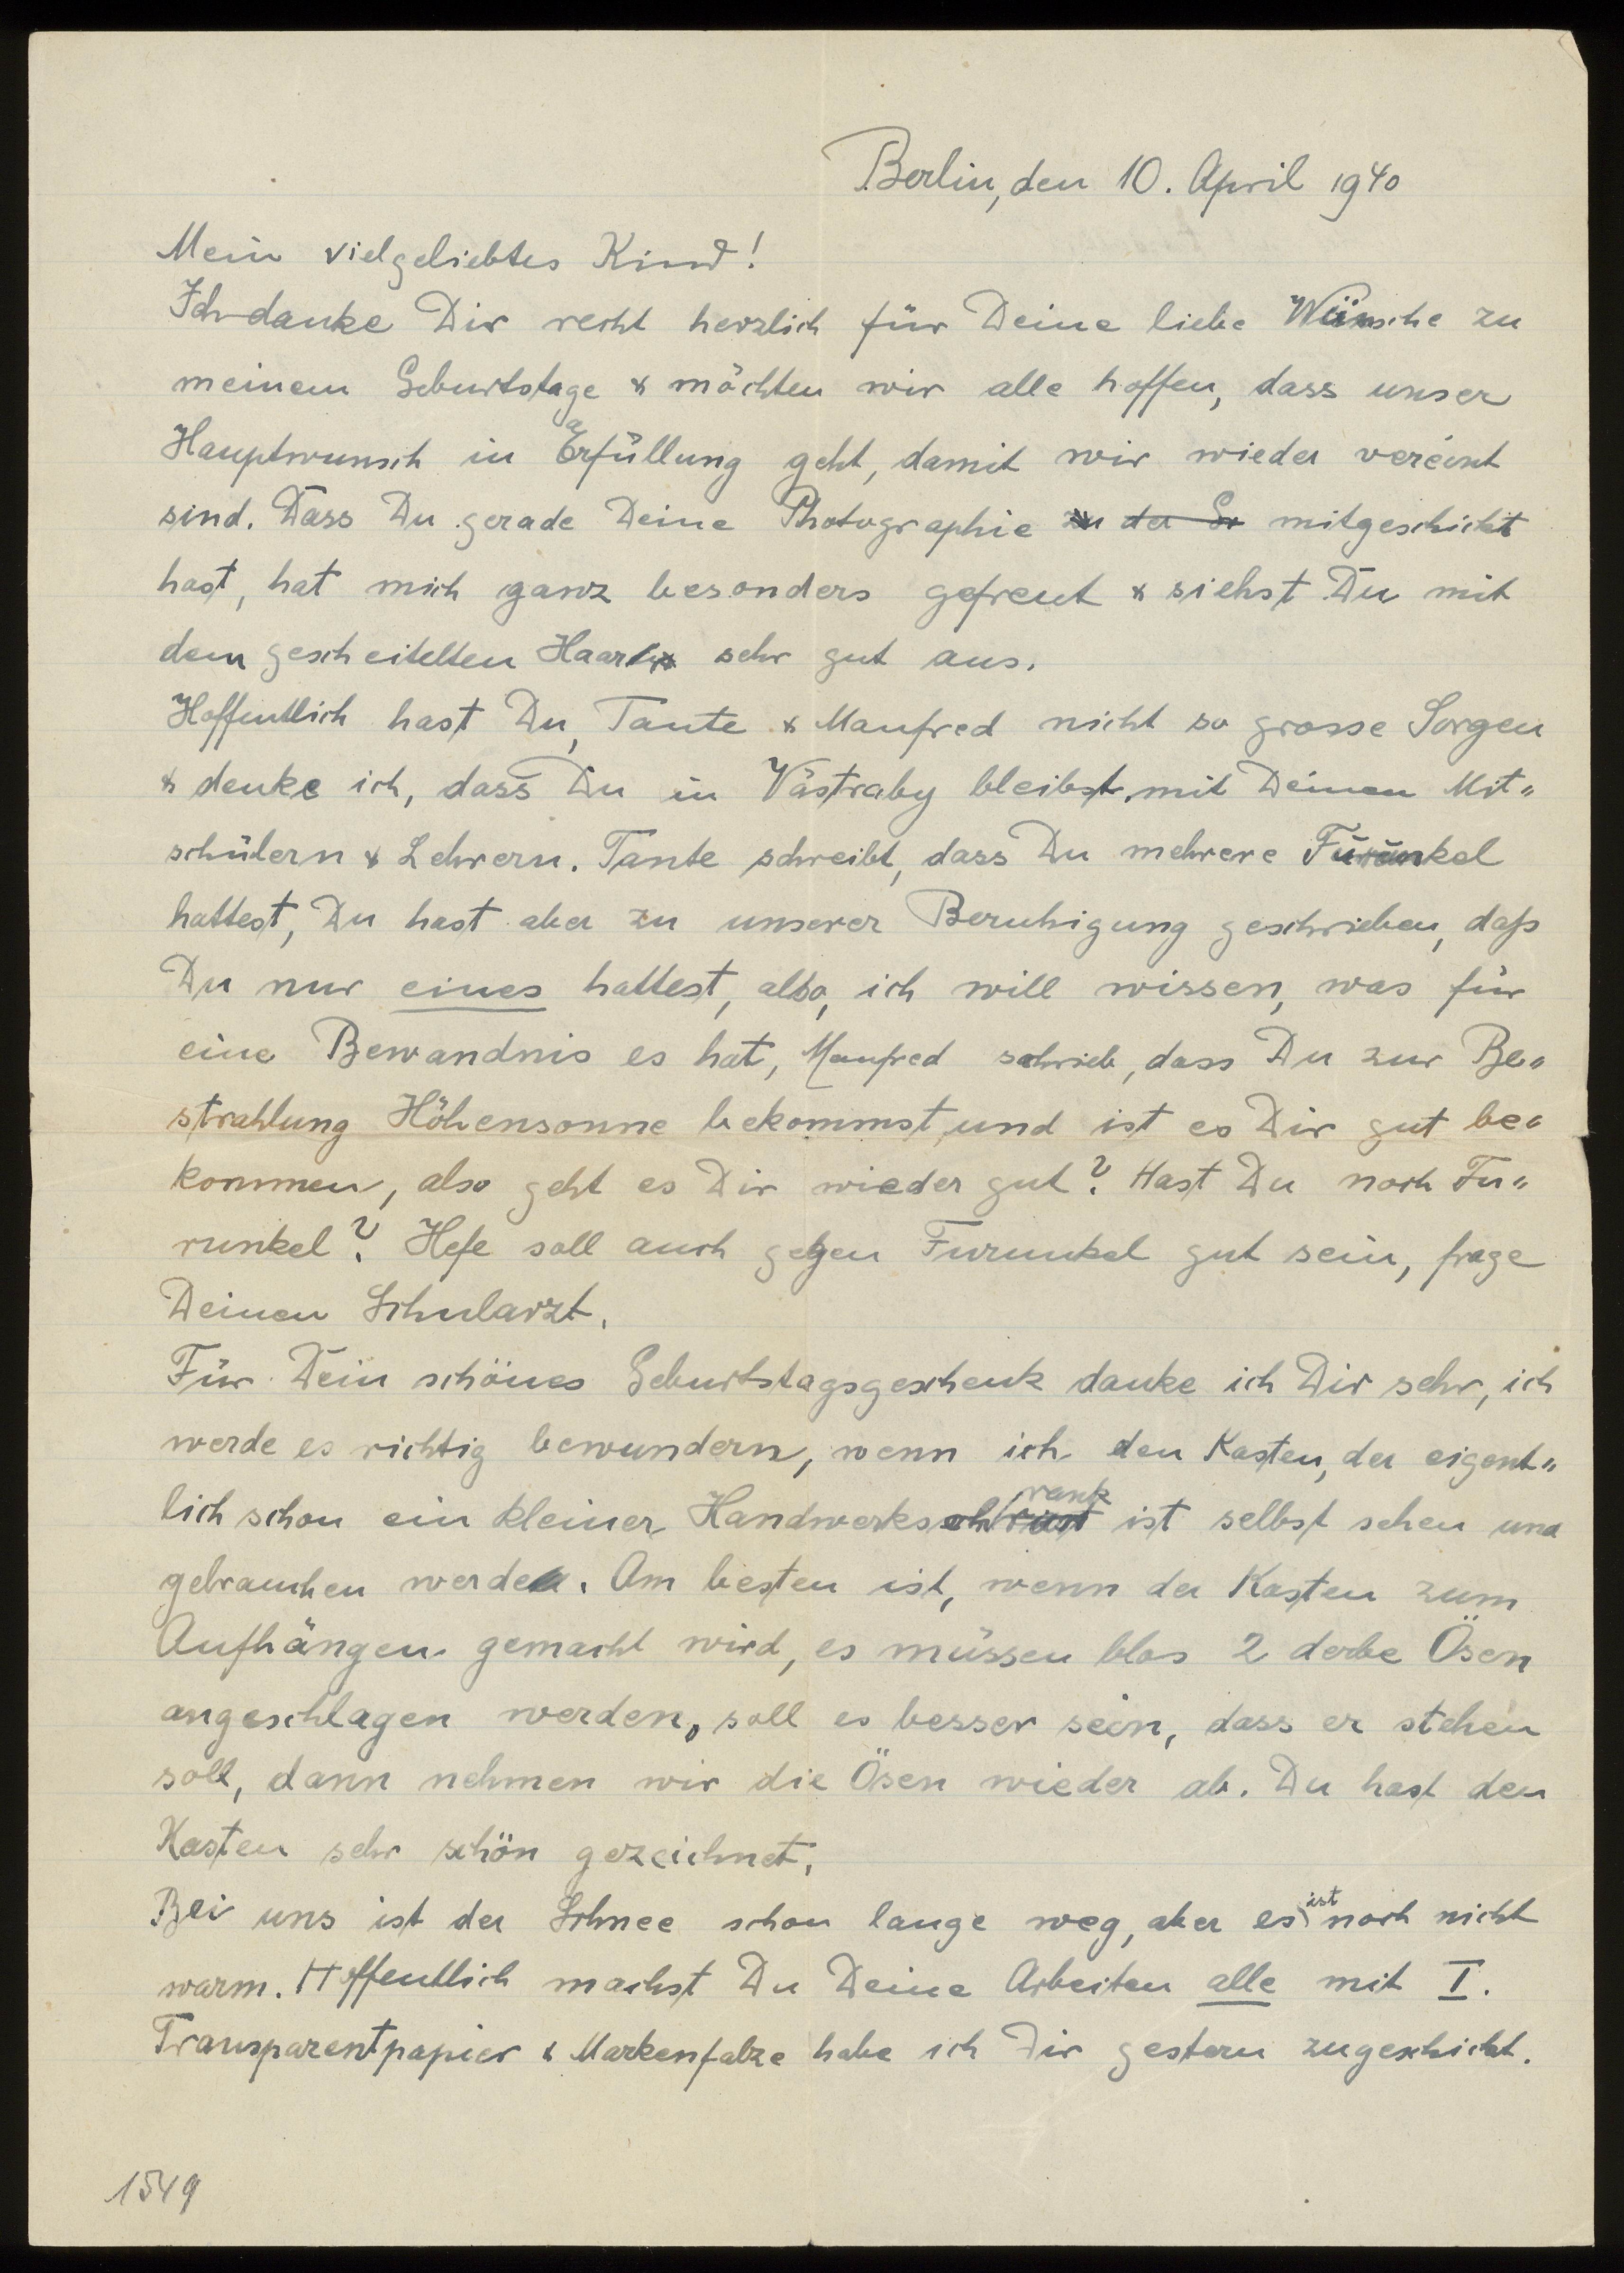 Berlin, den 10. April 1940
Mein vielgeliebtes Kind!
Ich danke Dir recht herzlich für Deine liebe Wünsche zu
meinem Geburtstage & möchten wir alle hoffen, dass unser
Hauptwunsch in Erfüllung geht, damit wir wieder vereint
sind. Dass Du gerade Deine Photographie zu der Gr mitgeschickt
hast, hat mich ganz besonders gefreut & siehst Du mit
dem gescheitelten Haar sehr gut aus.
Hoffentlich hast Du, Tante & Manfred nicht so grosse Sorgen
& denke ich, dass Du in Västraby bleibst, mit Deinen Mit"
schülern & Lehrern. Tante schreibt, dass Du mehrere Furunkel
hattest, Du hast aber zu unserer Beruhigung geschrieben, daß
Du nur eines hattest, also, ich will wissen, was für
eine Bewandnis es hat, Manfred schrieb, dass Du zur Be"
strahlung Höhensonne bekommst, und ist es Dir gut be"
kommen, also geht es Dir wieder gut? Hast Du noch Fu"
runkel? Hefe soll auch gegen Furunkel gut sein, frage
Deinen Schularzt.
Für Dein schönes Geburtstagsgeschenk danke ich Dir sehr, ich
werde es richtig bewundern, wenn ich den Kasten, der eigent"
lich schon ein kleiner Handwerksschrank ist selbst sehen und
gebrauchen werde. Am besten ist, wenn der Kasten zum
Aufhängen gemacht wird, es müssen blos 2 derbe Ösen
angeschlagen werden, soll es besser sein, dass er stehen
soll, dann nehmen wir die Ösen wieder ab. Du hast den
Kasten sehr schön gezeichnet.
Bei uns ist der Schnee schon lange weg, aber es ist noch nicht
warm. Hoffentlich machst Du Deine Arbeiten alle mit I.
Transparentpapier & Markenfalze habe ich Dir gestern zugeschickt.
1549